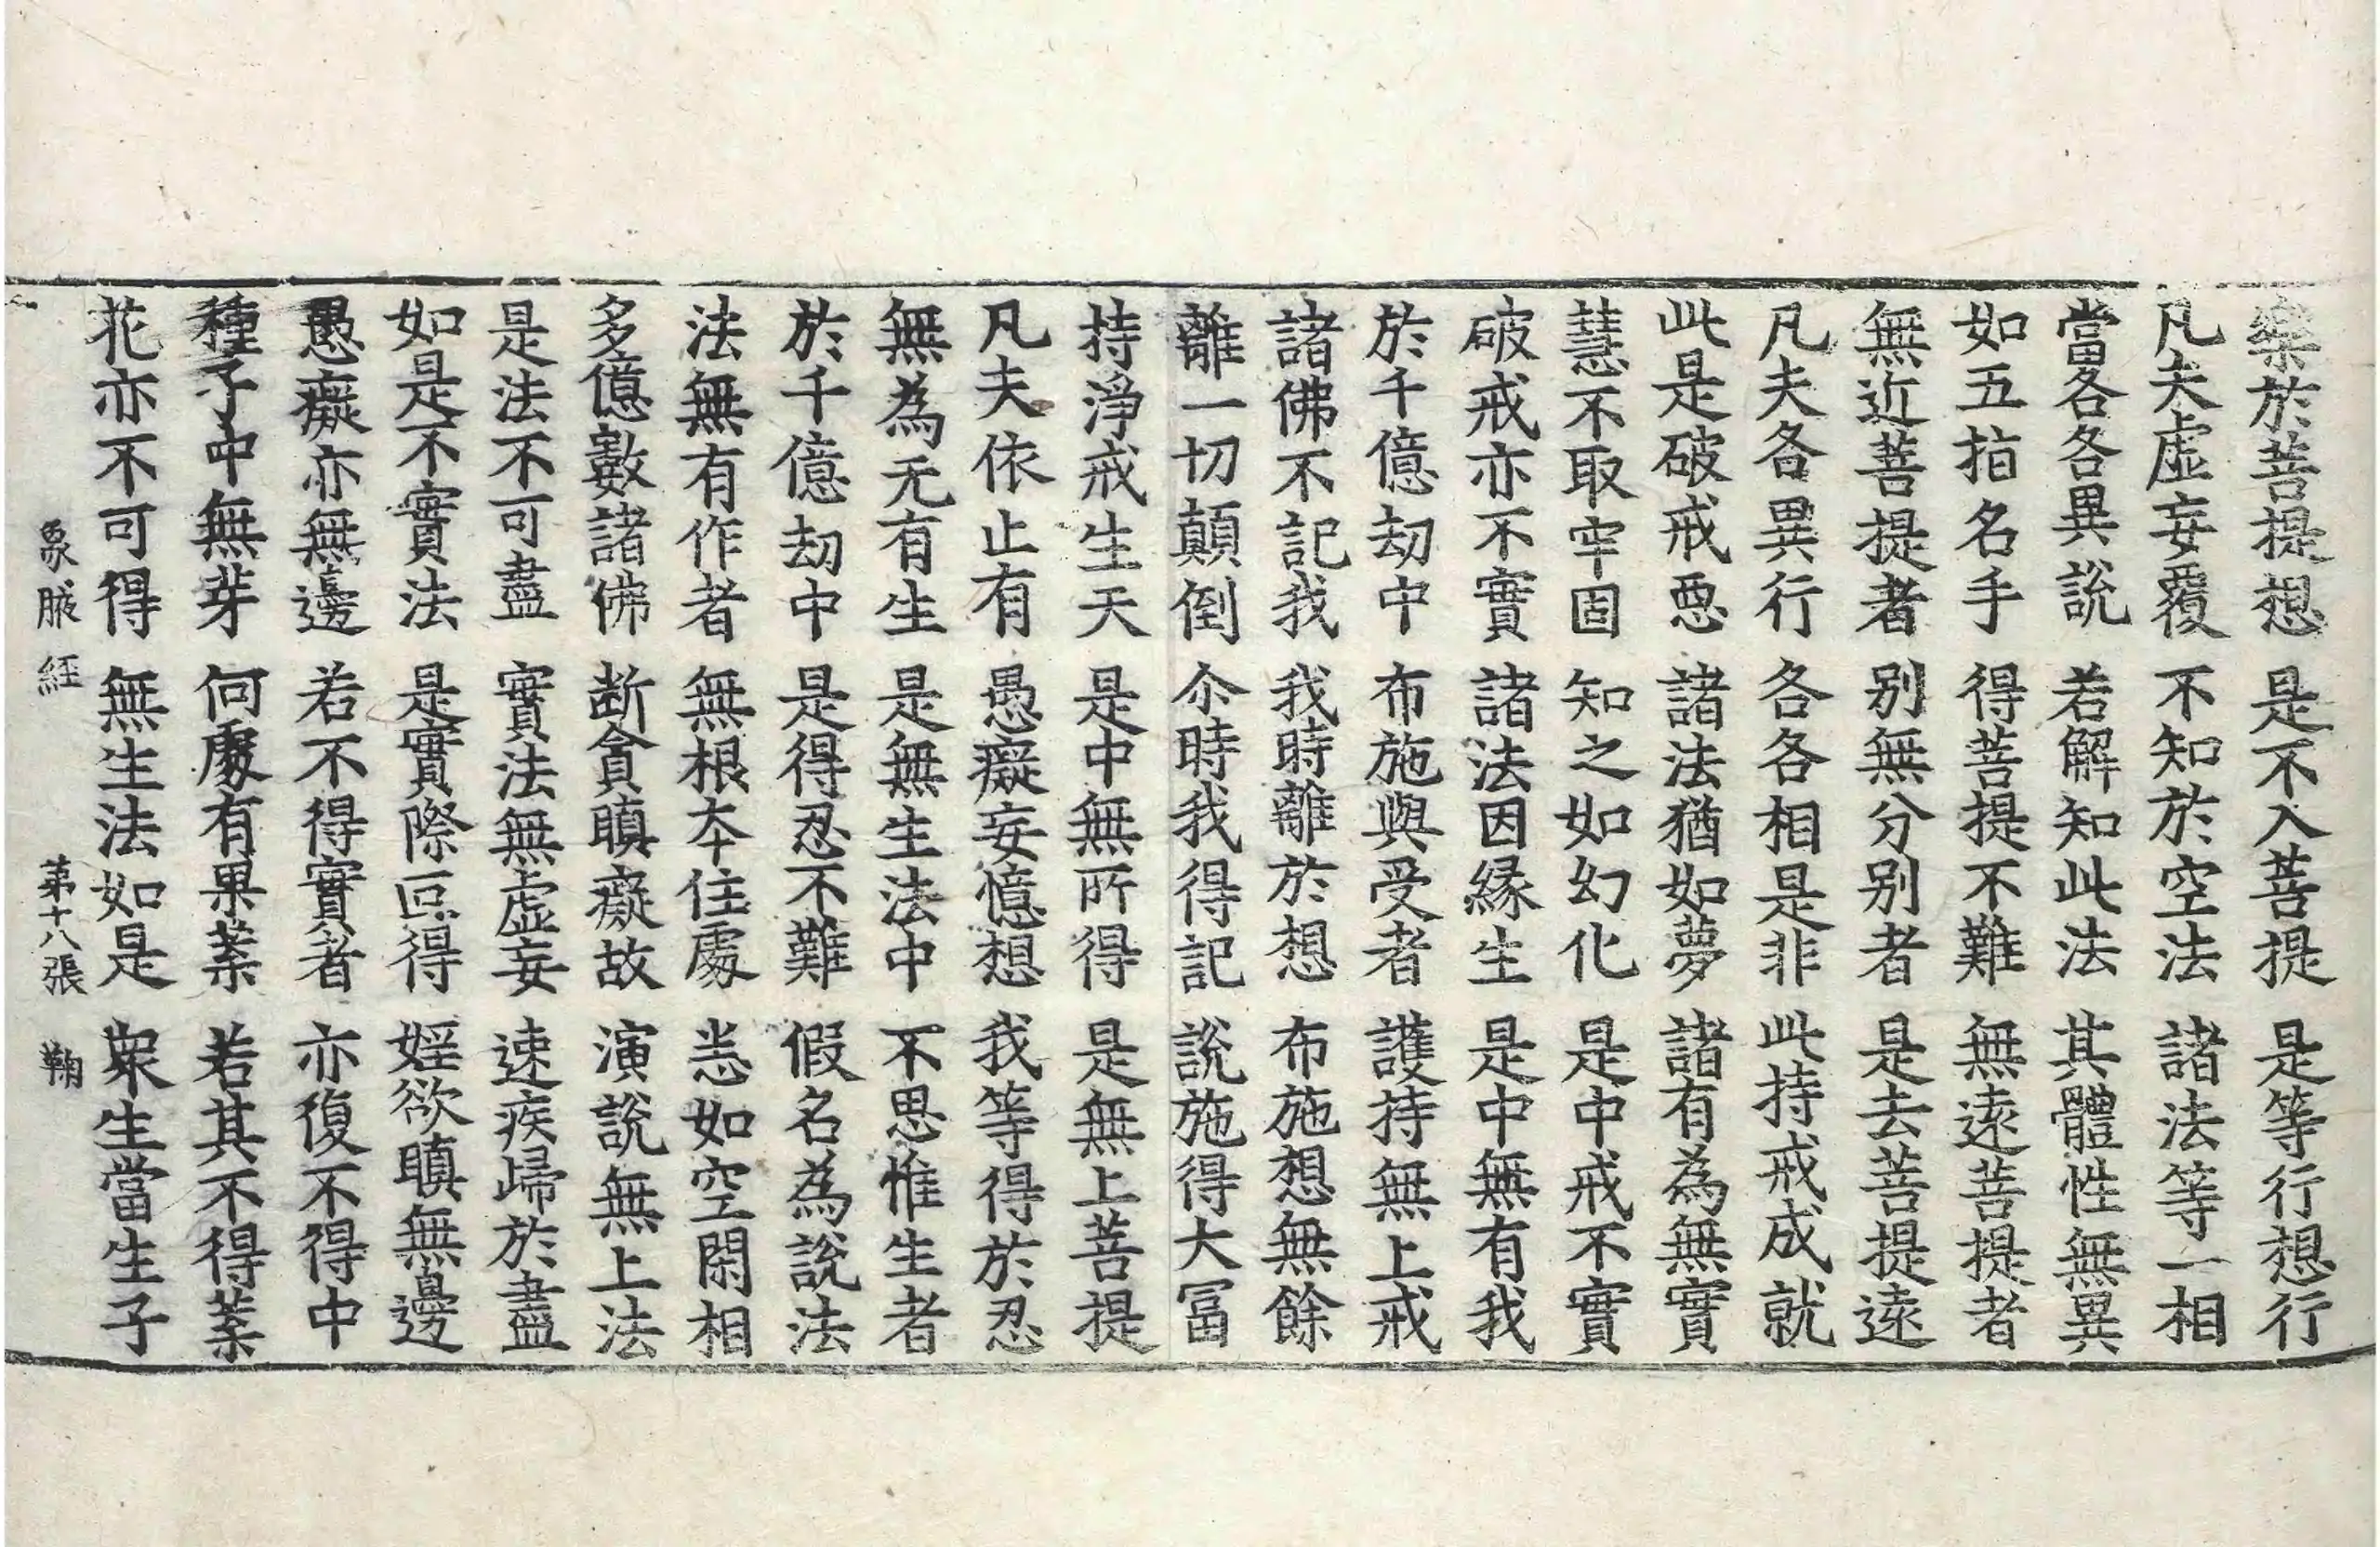 樂於菩提想 是不入菩提 是等行想行
凡夫虛妄覆 不知於空法 諸法等一相
當各各異說 若解知此法 其體性無異
如五指名手 得菩提不難 無遠菩提者
無近菩提者 别無分别者 是去菩提遠
凡夫各異行 各各相是非 此持戒成就
此是破戒惡 諸法猶如夢 諸有為無實
慧不取牢固 知之如幻化 是中戒不實
破戒亦不實 諸法因緣生 是中無有我
於千億劫中 布施與受者 護持無上戒
諸佛不記我 我時離於想 布施想無餘
離一切顛倒 尒時我得記 說施得大冨
持淨戒生天 是中無所得 是無上菩提
凡夫依止有 愚癡妄憶想 我等得於忍
無為无有生 是無生法中 不思惟生者
於千億劫中 是得忍不難 假名為說法
法無有作者 無根夲住處 悉如空閑相
多億數諸佛 断貪瞋癡故 演說無上法
是法不可盡 實法無虛妄 速疾歸於盡
如是不實法 是實際叵得 婬欲瞋無邊
愚癡亦無邊 若不得實者 亦復不得中
種子中無芽 何處有果葉 若其不得葉
花亦不可得 無生法如是 衆生當生子
象腋経 第十八張 鞠